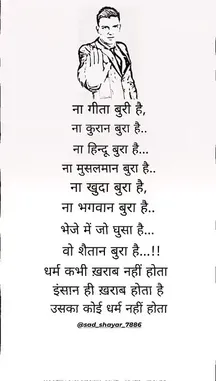 ना गीता बुरी है,
ना कुरान बुरा है..
ना हिन्दू बुरा है...
ना मुसलमान बुरा है..
ना खुदा बुरा है,
ना भगवान बुरा है..
भेजे में जो घुसा है...
वो शैतान बुरा है...!!
धर्म कभी ख़राब नहीं होता
इंसान ही ख़राब होता है
उसका कोई धर्म नहीं होता
@sad_shayar_7886